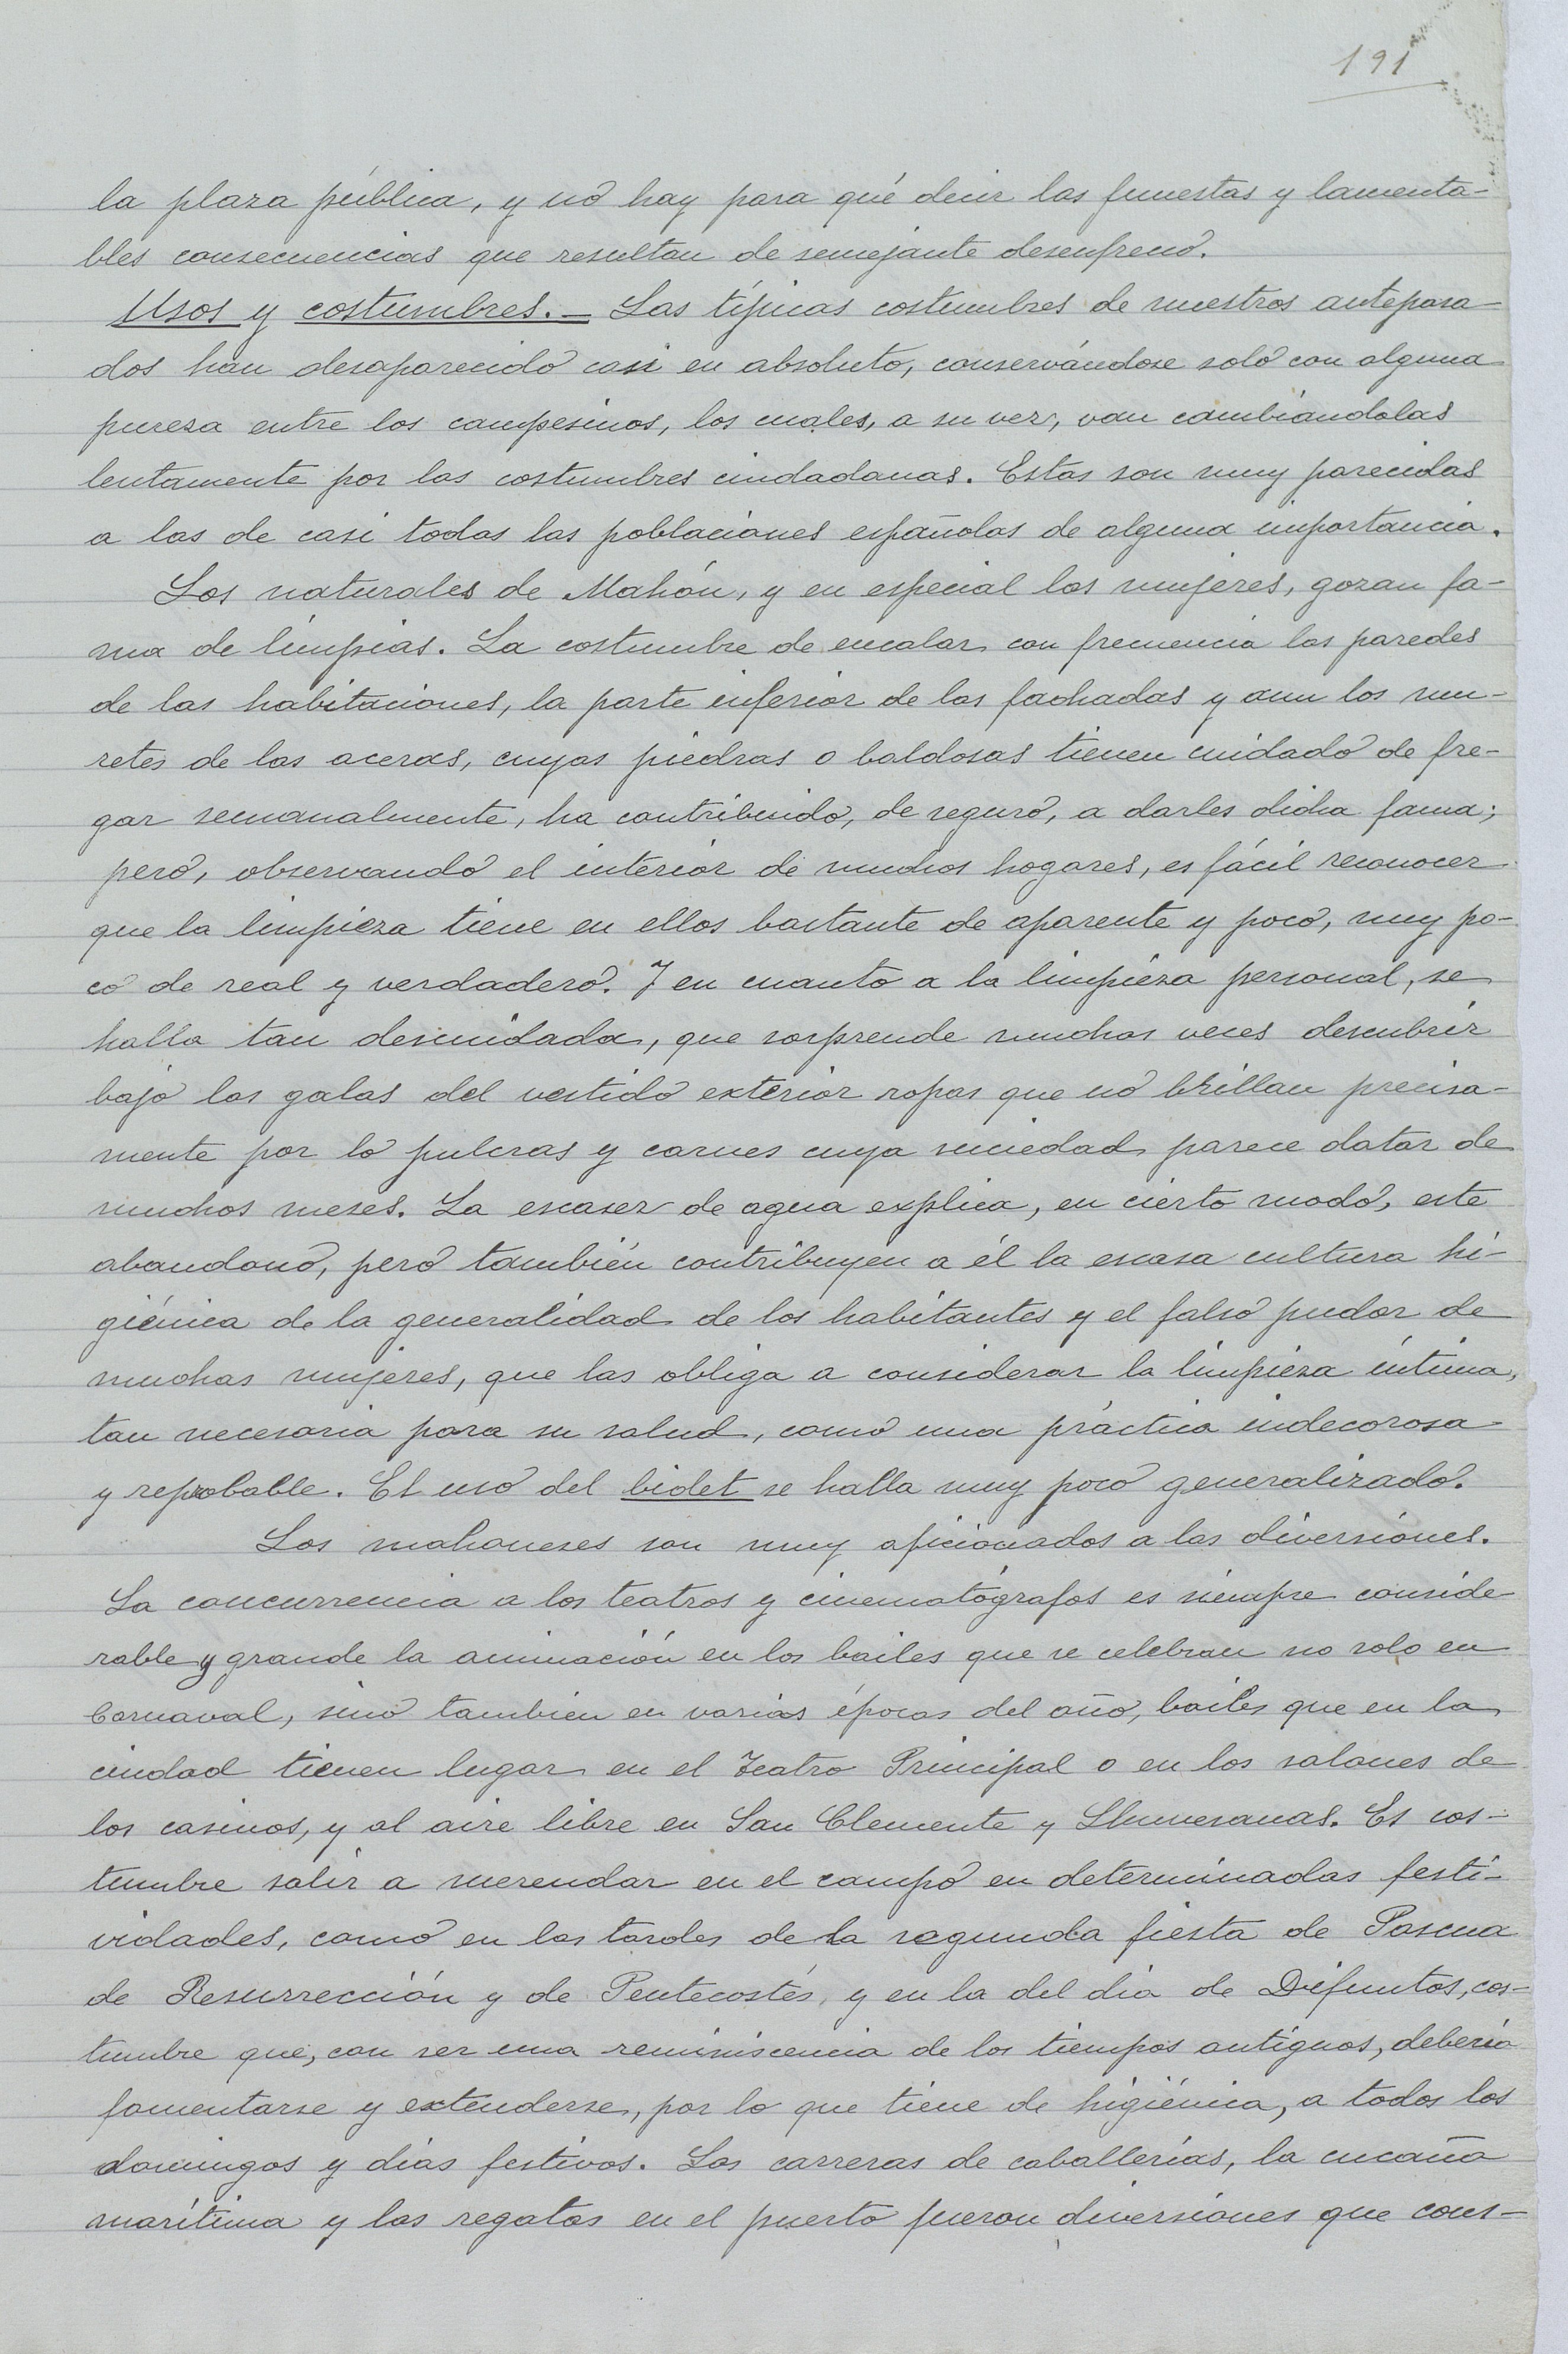 191
la plaza pública, y no hay para qué decir las funestas y lamenta-
bles consecuencias que resultan de semejante desenfreno.
Usos y costumbres.— Las típicas costumbres de nuestros antepasa-
dos han desaparecido casi en absoluto, conservándose solo con alguna
pureza entre los campesinos, los cuales, a su vez, van cambiándolas
lentamente por las costumbres ciudadanas. Estas son muy parecidas
a las de casi todas las poblaciones españolas de alguna importancia.
Los naturales de Mahón, y en especial las mujeres, gozan fa-
ma de limpias. La costumbre de encalar con frecuencia las paredes
de las habitaciones, la parte inferior de las fachadas y aun los mu-
retes de las aceras, cuyas piedras o baldosas tienen cuidado de fre-
gar semanalmente, ha contribuido, de seguro, a darles dicha fama;
pero, observando el interior de muchos hogares, es fácil reconocer
que la limpieza tiene en ellos bastante de aparente y poco, muy po-
co de real y verdadero. Y en cuanto a la limpieza personal, se
halla tan descuidada, que sorprende muchas veces descubrir
bajo las galas del vestido exterior ropas que no brillan precisa-
mente por lo pulcras y carnes cuya suciedad parece datar de
muchos meses. La escasez de agua explica, en cierto modo, este
abandono, pero también contribuyen a él la escasa cultura hi-
giénica de la generalidad de los habitantes y el falso pudor de
muchas mujeres, que las obliga a considerar la limpieza íntima,
tan necesaria para su salud, como una práctica indecorosa
y reprobable. El uso del bidet se halla muy poco generalizado.
Los mahoneses son muy aficionados a las diversiones.
La concurrencia a los teatros y cinematógrafos es siempre conside
rable y grande la animación en los bailes que se celebran no solo en
Carnaval, sino también en varias épocas del año, bailes que en la
ciudad tienen lugar en el Teatro Principal o en los salones de
los casinos, y al aire libre en San Clemente y Llumesanas. Es cos-
tumbre salir a merendar en el campo en determinadas festi-
vidades, como en las tardes de la segunda fiesta de Pascua
de Resurrección y de Pentecostés, y en la del día de Difuntos, cos-
tumbre que, con ser una reminiscencia de los tiempos antiguos, debería
fomentarse y extenderse, por lo que tiene de higiénica, a todos los
domingos y días festivos. Las carreras de caballerías, la cucaña
marítima y las regatas en el puerto fueron diversiones que cons-